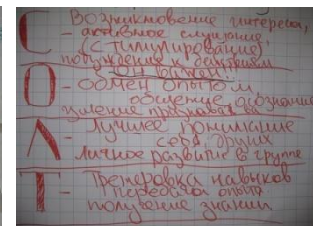 С Возникновение интереса,
- активное слушание,
(стимулирование,
побуждение к действиям
он важен.
О - обмен опытом,
общение, осознание
умение признавать
Л - лучшее понимание
себя, других
личное развитие в группе
Т - Тренировка навыков
передача опыта
получение знаний